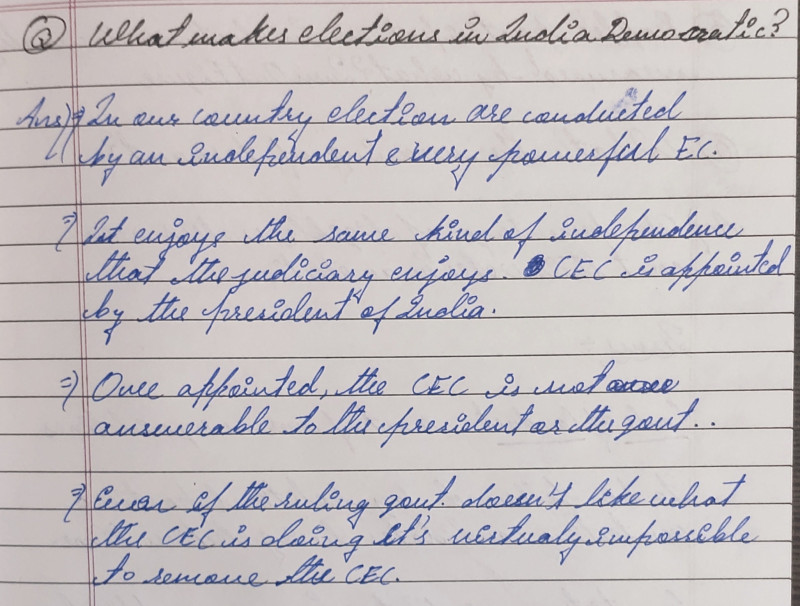 Q) What makes elections in India Democratic?
Ans) ⇒ In our country election are conducted
by an independent & very powerful EC.
⇒ It enjoys the same kind of independence
that the judiciary enjoys. CEC is appointed
by the president of India.
⇒ Once appointed, the CEC is not
answerable to the president or the govt..
⇒ Even if the ruling govt. doesn't like what
the CEC is doing it's virtualy impossible
to remove the CEC.